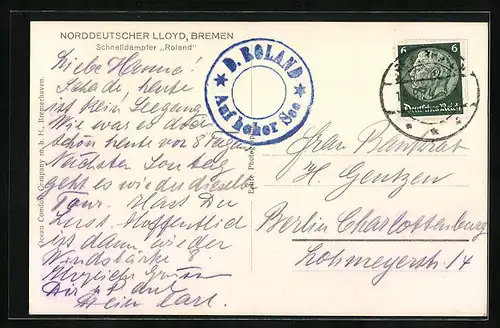 NORDDEUTSCHER LLOYD, BREMEN
Schnelldampfer „Roland"
Liebe Hanna!
Schade, heute
ist kein Seegang.
Wie war es aber
schön heute vor 8 Tagen
Nächsten Sonntag
geht es wieder dieselbe
Tour. Hast Du
Lust. Hoffentlich
ist dann wieder
Windstärke 8.
Herzliche Grüsse
Dir u.
Dein Karl.
Ocean Comfort Company m. b. H., Bremerhaven.
Echte Photo
D. ROLAND
Auf hoher See
6 6
Deutsches Reich
Frau
H. Gentzen
Berlin Charlottenburg
Lohmeyerstr. 14